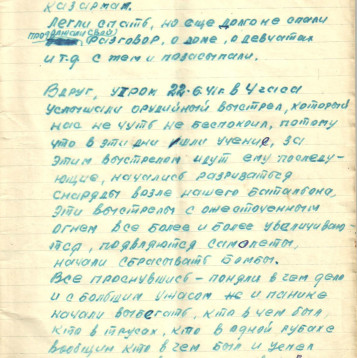 казармам.
Легли спать, но еще долго не спали
продолжали свой разговор, о доме, о девчатах
и т.д с тем и позасыпали.
Вдруг, утром 22-6-41г в 4 часа
услышали орудийный выстрел, который
нас не чуть не беспокоил, потому
что в эти дни шли учение, за
этим выстрелом идут ему последу-
ющие, начались разрываться
снаряды возле нашего баталиона,
эти выстрелы с ожесточенным
огнем все более и более увеличиваю-
тся, подвляются самолеты,
начали сбрасывать бомбы.
Все проснувшись - поняли в чем дело
и с большим ужасом и панике
начали выбегать, кто в чем был,
кто в трусах, кто в одной рубахе
вообщим кто в чем был и успел